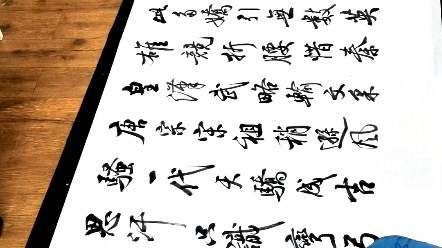 此多嬌引無數英
雄競折腰惜秦
皇漢武略輸文采
唐宗宋祖稍遜風
騷一代天驕成吉
思汗只識彎弓